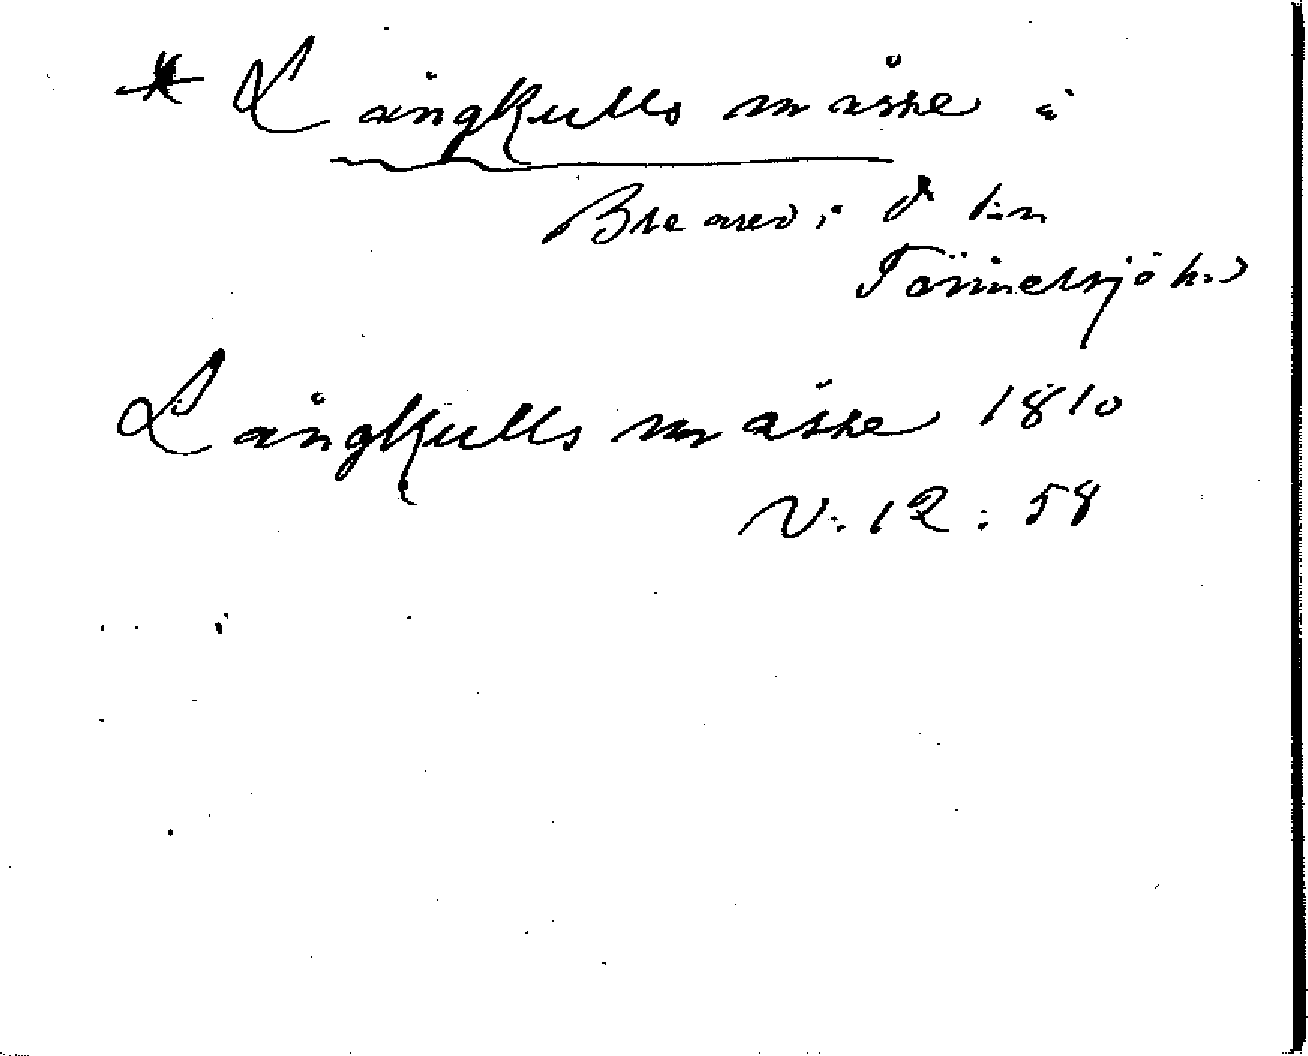 * Långkulls måsse i
Breared i d sn
Tönnersjö hd
Långkulls måsse 1810
V: 12 : 58